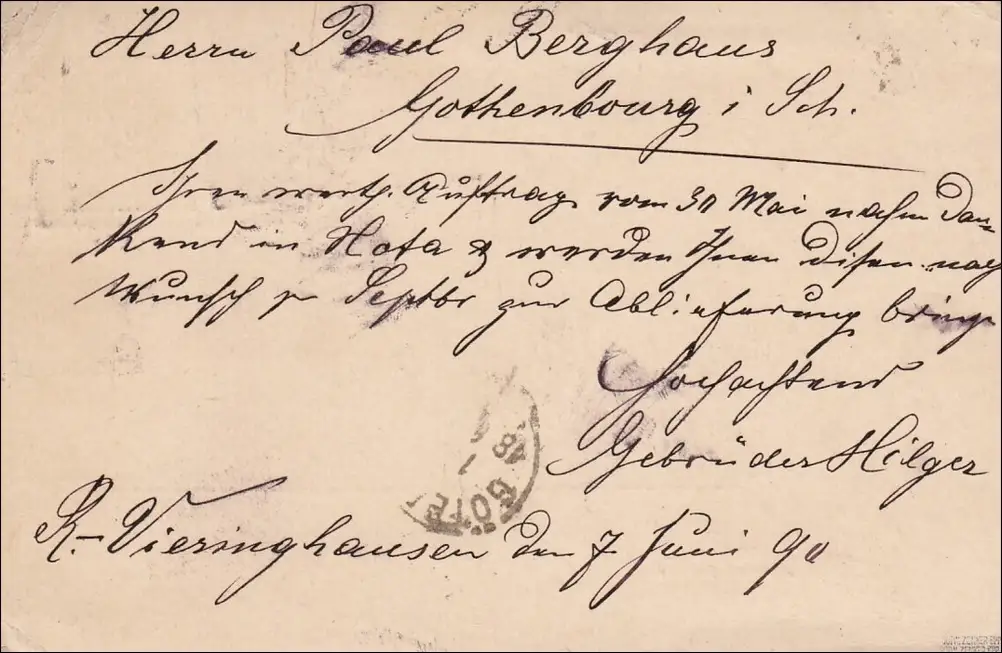 Herrn Paul Berghaus
Gothenbourg i Sch.
Ihren werth. Auftrag vom 30 Mai nahm dan-
kend in Nota & werden Ihnen disen nach
Wunsch pr Septbr zur Ablieferung bringen
Hochachtend
Gebrüder Hilger
R.-Vieringhausen den 7 Juni 90